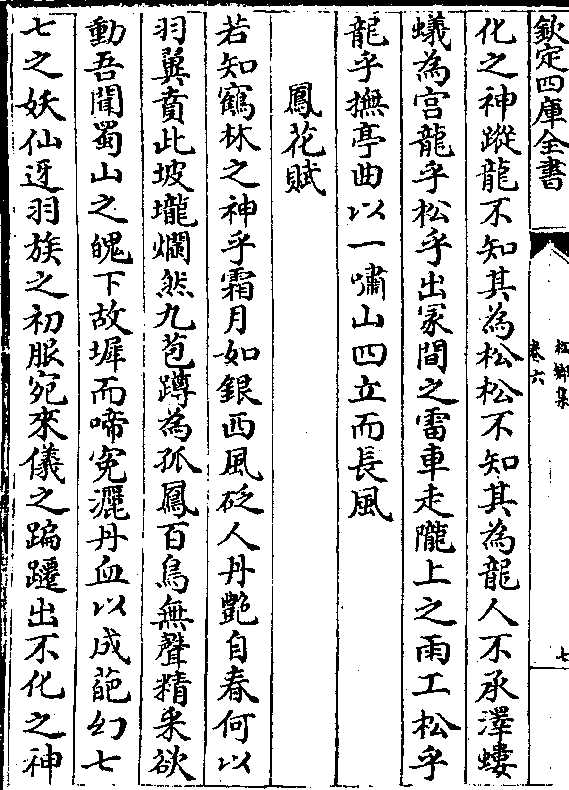 欽定四庫全書
卷六
七
化之神蹤龍不知其為松松不知其為龍人不承澤螻
蟻為宫龍乎松乎出冢間之雷車走隴上之雨工松乎
龍乎撫亭曲以一嘯山四立而長風
鳳花賦
若知鶴林之神乎霜月如銀西風砭人丹艶自春何以
羽翼賁此坡壠爛然九苞蹲為孤鳳百鳥無聲精采欲
動吾聞蜀山之魄下故墀而啼寃灑丹血以成葩幻七
七之妖仙迓羽族之初服宛來儀之蹁躚出不化之神